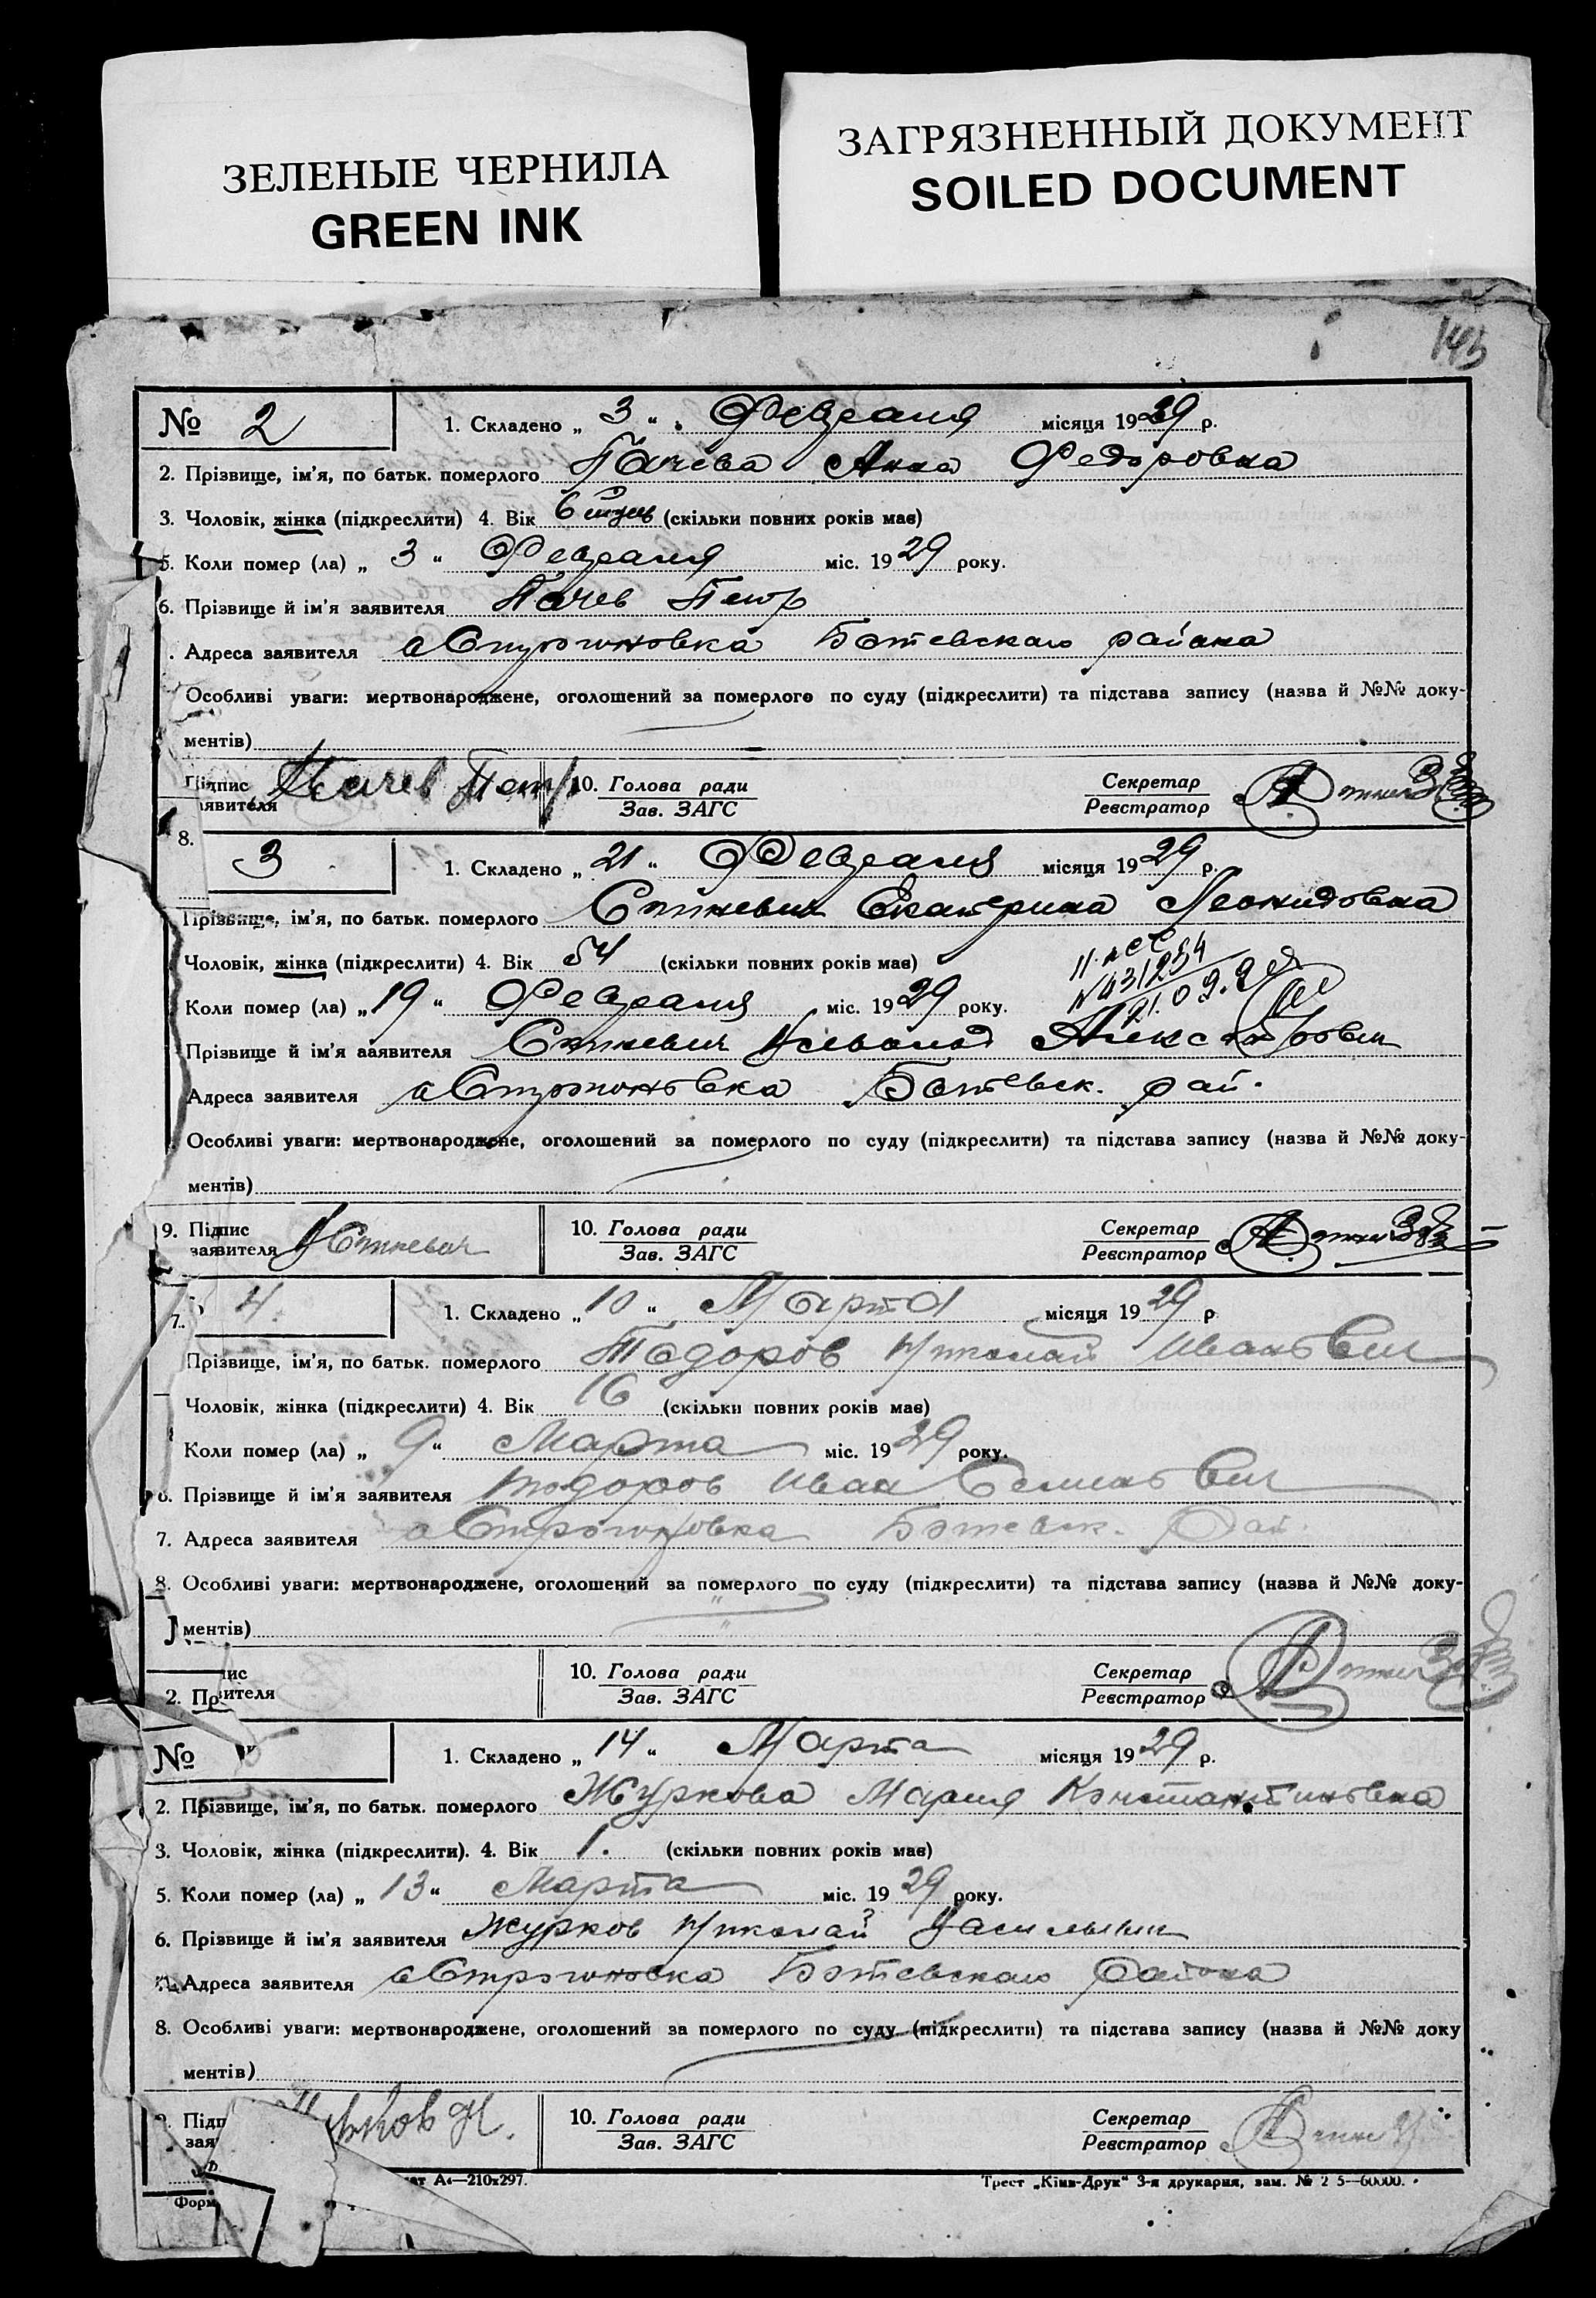 ЗЕЛЕНЫЕ ЧЕРНИЛА
GREEN INK
ЗАГРЯЗНЕННЫЙ ДОКУМЕНТ
SOILED DOCUMENT
143
№ 2
1. Складено „ 3 “ Февраля місяця 1929 р.
2. Прізвище, ім’я, по батьк. померлого Пачева Анна Федоровна
3. Чоловік, жінка (підкреслити) 4. Вік 6 (скільки повних років має)
5. Коли помер (ла) „ 3 “ Февраля міс. 1929 року.
6. Прізвище й ім’я заявителя Пачев Петр
. Адреса заявителя с Строгоновка Ботевского района
Особливі уваги: мертвонароджене, оголошений за померлого по суду (підкреслити) та підстава запису (назва й №№ доку-
ментів)
Підпис заявителя Пачев Петр
10. Голова ради
Зав. ЗАГС
Секретар
Реєстратор
8.
3
1. Складено „ 21 “ Февраля місяця 1929 р.
Прізвище, ім’я, по батьк. померлого Екатерина Леонидовна
Чоловік, жінка (підкреслити) 4. Вік 54 (скільки повних років має)
Коли помер (ла) „ 19 “ Февраля міс. 1929 року.
Прізвище й ім’я заявителя Всеволод Александрович
Адреса заявителя с Строгоновка Ботевск. рай.
Особливі уваги: мертвонароджене, оголошений за померлого по суду (підкреслити) та підстава запису (назва й №№ доку-
ментів)
9. Підпис
заявителя
10. Голова ради
Зав. ЗАГС
Секретар
Реєстратор
7.
4.
1. Складено „ 10 “ Марта місяця 1929 р
Прізвище, ім’я, по батьк. померлого Тодоров Николай Иванович
Чоловік, жінка (підкреслити) 4. Вік 16 (скільки повних років має)
Коли помер (ла) „ 9 “ Марта міс. 1929 року.
6. Прізвище й ім’я заявителя Тодоров Иван
7. Адреса заявителя с Строгоновка Ботевск. Рай.
8. Особливі уваги: мертвонароджене, оголошений за померлого по суду (підкреслити) та підстава запису (назва й №№ доку-
ментів)
пис
вителя
10. Голова ради
Зав. ЗАГС
Секретар
Реєстратор
2. Пр
№
1. Складено „ 14 “ Марта місяця 1929 р.
2. Прізвище, ім’я, по батьк. померлого Журкова Мария Константиновна
3. Чоловік, жінка (підкреслити). 4. Вік 1. (скільки повних років має)
5. Коли помер (ла) „ 13 “ Марта міс. 1929 року.
6. Прізвище й ім’я заявителя Журков Николай Васильевич
7. Адреса заявителя с Строгоновка Ботевского Района
8. Особливі уваги: мертвонароджене, оголошений за померлого по суду (підкреслити) та підстава запису (назва й №№ доку
ментів)
9. Підп
зая
Журков Н.
10. Голова ради
Зав. ЗАГС
Секретар
Реєстратор
Форм
ат А₄—210х297.
Трест „Київ-Друк“ 3-я друкарня, зам. № 2 5—60000.